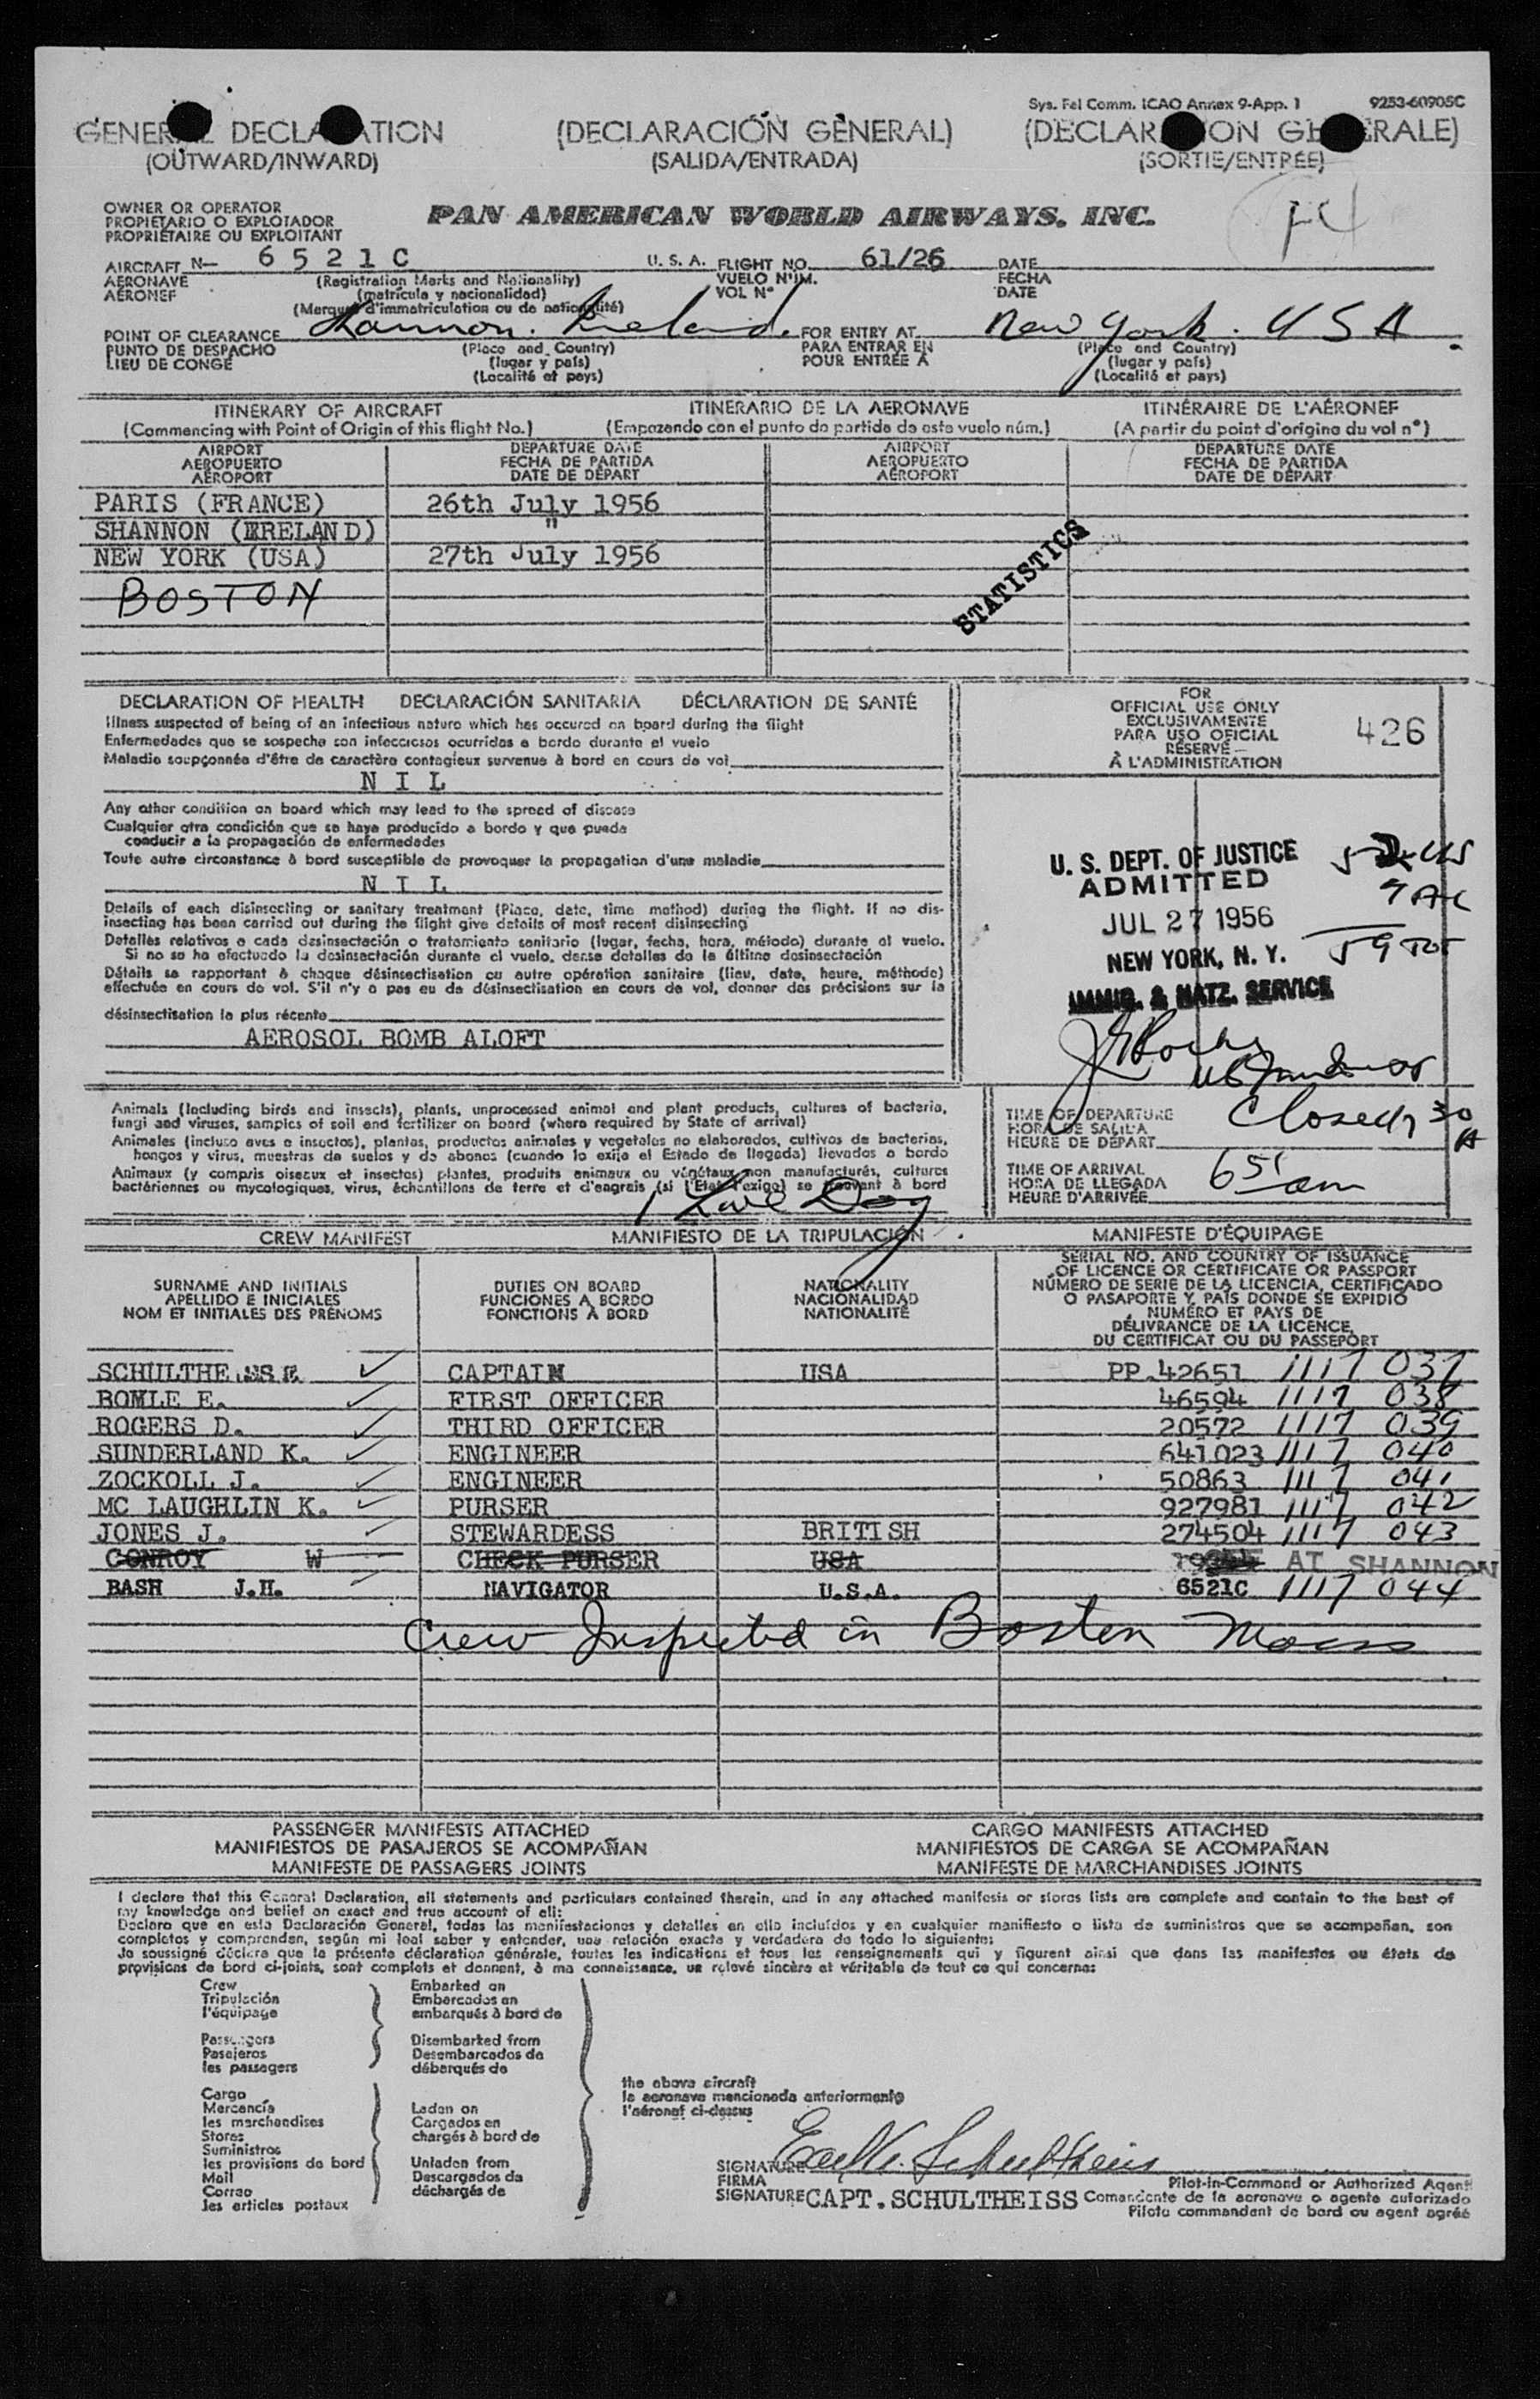 Sys. Fal Comm. ICAO Annex 9-App. 1 9253-60905C
GENERAL DECLARATION (DECLARACIÓN GENERAL) (DECLARATION GENERALE)
(OUTWARD/INWARD) (SALIDA/ENTRADA) (SORTIE/ENTRÉE)
OWNER OR OPERATOR
PROPIETARIO O EXPLOTADOR
PROPRIÉTAIRE OU EXPLOITANT
PAN AMERICAN WORLD AIRWAYS, INC.
AIRCRAFT N- 6521C U. S. A. FLIGHT NO. 61/26 DATE
AERONAVE (Registration Marks and Nationality) VUELO NÚM. FECHA
AÉRONEF (matrícula y nacionalidad) VOL Nº DATE
(Marques d'immatriculation ou de nationalité)
POINT OF CLEARANCE Shannon. Ireland. FOR ENTRY AT New York. USA.
PUNTO DE DESPACHO (Place and Country) PARA ENTRAR EN (Place and Country)
LIEU DE CONGÉ (lugar y país) POUR ENTRÉE À (lugar y país)
(Localité et pays) (Localité et pays)
ITINERARY OF AIRCRAFT ITINERARIO DE LA AERONAVE ITINÉRAIRE DE L'AÉRONEF
(Commencing with Point of Origin of this flight No.) (Empezando con el punto de partida de este vuelo núm.) (A partir du point d'origine du vol nº)
AIRPORT DEPARTURE DATE AIRPORT DEPARTURE DATE
AEROPUERTO FECHA DE PARTIDA AEROPUERTO FECHA DE PARTIDA
AÉROPORT DATE DE DÉPART AÉROPORT DATE DE DÉPART
PARIS (FRANCE) 26th July 1956
SHANNON (IRELAND) "
NEW YORK (USA) 27th July 1956
BOSTON
STATISTICS
DECLARATION OF HEALTH DECLARACIÓN SANITARIA DÉCLARATION DE SANTÉ
Illness suspected of being of an infectious nature which has occured on board during the flight
Enfermedades que se sospecha son infecciosas ocurridas a bordo durante el vuelo
Maladie soupçonnée d'être de caractère contagieux survenue à bord en cours de vol
NIL
Any other condition on board which may lead to the spread of disease
Cualquier otra condición que se haya producido a bordo y que pueda
conducir a la propagación de enfermedades
Toute autre circonstance à bord susceptible de provoquer la propagation d'une maladie
NIL
Details of each disinsecting or sanitary treatment (Place, date, time method) during the flight. If no dis-
insecting has been carried out during the flight give details of most recent disinsecting
Detalles relativos a cada desinsectación o tratamiento sanitario (lugar, fecha, hora, método) durante el vuelo.
Si no se ha efectuado la desinsectación durante el vuelo, dense detalles de la última desinsectación
Détails se rapportant à chaque désinsectisation ou autre opération sanitaire (lieu, date, heure, méthode)
effectuée en cours de vol. S'il n'y a pas eu de désinsectisation en cours de vol, donner des précisions sur la
désinsectisation la plus récente
AEROSOL BOMB ALOFT
FOR
OFFICIAL USE ONLY
EXCLUSIVAMENTE
PARA USO OFICIAL
RÉSERVÉ
À L'ADMINISTRATION
426
U. S. DEPT. OF JUSTICE
ADMITTED
JUL 27 1956
NEW YORK, N. Y.
IMMIG. & NATZ. SERVICE
Animals (Including birds and insects), plants, unprocessed animal and plant products, cultures of bacteria,
fungi and viruses, samples of soil and fertilizer on board (where required by State of arrival)
Animales (incluso aves e insectos), plantas, productos animales y vegetales no elaborados, cultivos de bacterias,
hongos y virus, muestras de suelos y de abonos (cuando lo exija el Estado de llegada) llevados a bordo
Animaux (y compris oiseaux et insectes) plantes, produits animaux ou végétaux non manufacturés, cultures
bactériennes ou mycologiques, virus, échantillons de terre et d'engrais (si l'État l'exige) se trouvant à bord
1 Live Dog
TIME OF DEPARTURE Closed 7 30 A
HORA DE SALIDA
HEURE DE DÉPART
TIME OF ARRIVAL 651 am
HORA DE LLEGADA
HEURE D'ARRIVÉE
CREW MANIFEST MANIFIESTO DE LA TRIPULACIÓN MANIFESTE D'ÉQUIPAGE
SURNAME AND INITIALS
APELLIDO E INICIALES
NOM ET INITIALES DES PRÉNOMS
DUTIES ON BOARD
FUNCIONES A BORDO
FONCTIONS À BORD
NATIONALITY
NACIONALIDAD
NATIONALITÉ
SERIAL NO. AND COUNTRY OF ISSUANCE
OF LICENCE OR CERTIFICATE OR PASSPORT
NÚMERO DE SERIE DE LA LICENCIA, CERTIFICADO
O PASAPORTE Y PAÍS DONDE SE EXPIDIÓ
NUMÉRO ET PAYS DE
DÉLIVRANCE DE LA LICENCE,
DU CERTIFICAT OU DU PASSEPORT
SCHULTHEISS E CAPTAIN USA PP.42651 1117 037
ROMLE E. FIRST OFFICER 46594 1117 038
ROGERS D. THIRD OFFICER 20572 1117 039
SUNDERLAND K. ENGINEER 641023 1117 040
ZOCKOLL J. ENGINEER 50863 1117 041
MC LAUGHLIN K. PURSER 927981 1117 042
JONES J. STEWARDESS BRITISH 274504 1117 043
CONROY W CHECK PURSER USA AT SHANNON
BASH J.H. NAVIGATOR U.S.A. 6521C 1117 044
Crew Inspected in Boston Mass
PASSENGER MANIFESTS ATTACHED CARGO MANIFESTS ATTACHED
MANIFIESTOS DE PASAJEROS SE ACOMPAÑAN MANIFIESTOS DE CARGA SE ACOMPAÑAN
MANIFESTE DE PASSAGERS JOINTS MANIFESTE DE MARCHANDISES JOINTS
I declare that this General Declaration, all statements and particulars contained therein, and in any attached manifests or stores lists are complete and contain to the best of
my knowledge and belief an exact and true account of all:
Declaro que en esta Declaración General, todas las manifestaciones y detalles en ella incluídos y en cualquier manifiesto o lista de suministros que se acompañan, son
completos y comprenden, según mi leal saber y entender, una relación exacta y verdadera de todo lo siguiente:
Je soussigné déclare que la présente déclaration générale, toutes les indications et tous les renseignements qui y figurent ainsi que dans les manifestes ou états de
provisions de bord ci-joints, sont complets et donnent, à ma connaissance, un relevé sincère et véritable de tout ce qui concerne:
Crew Embarked on
Tripulación Embarcados en
l'équipage embarqués à bord de
Passengers Disembarked from
Pasajeros Desembarcados de
les passagers débarqués de
the above aircraft
la aeronave mencionada anteriormente
l'aéronef ci-dessus
Cargo
Mercancía Laden on
les marchandises Cargados en
Stores chargés à bord de
Suministros
les provisions de bord Unladen from
Mail Descargados de
Correo déchargés de
les articles postaux
SIGNATURE Earl K. Schultheiss Pilot-in-Command or Authorized Agent
FIRMA
SIGNATURE CAPT. SCHULTHEISS Comandante de la aeronave o agente autorizado
Pilote commandant de bord ou agent agréé